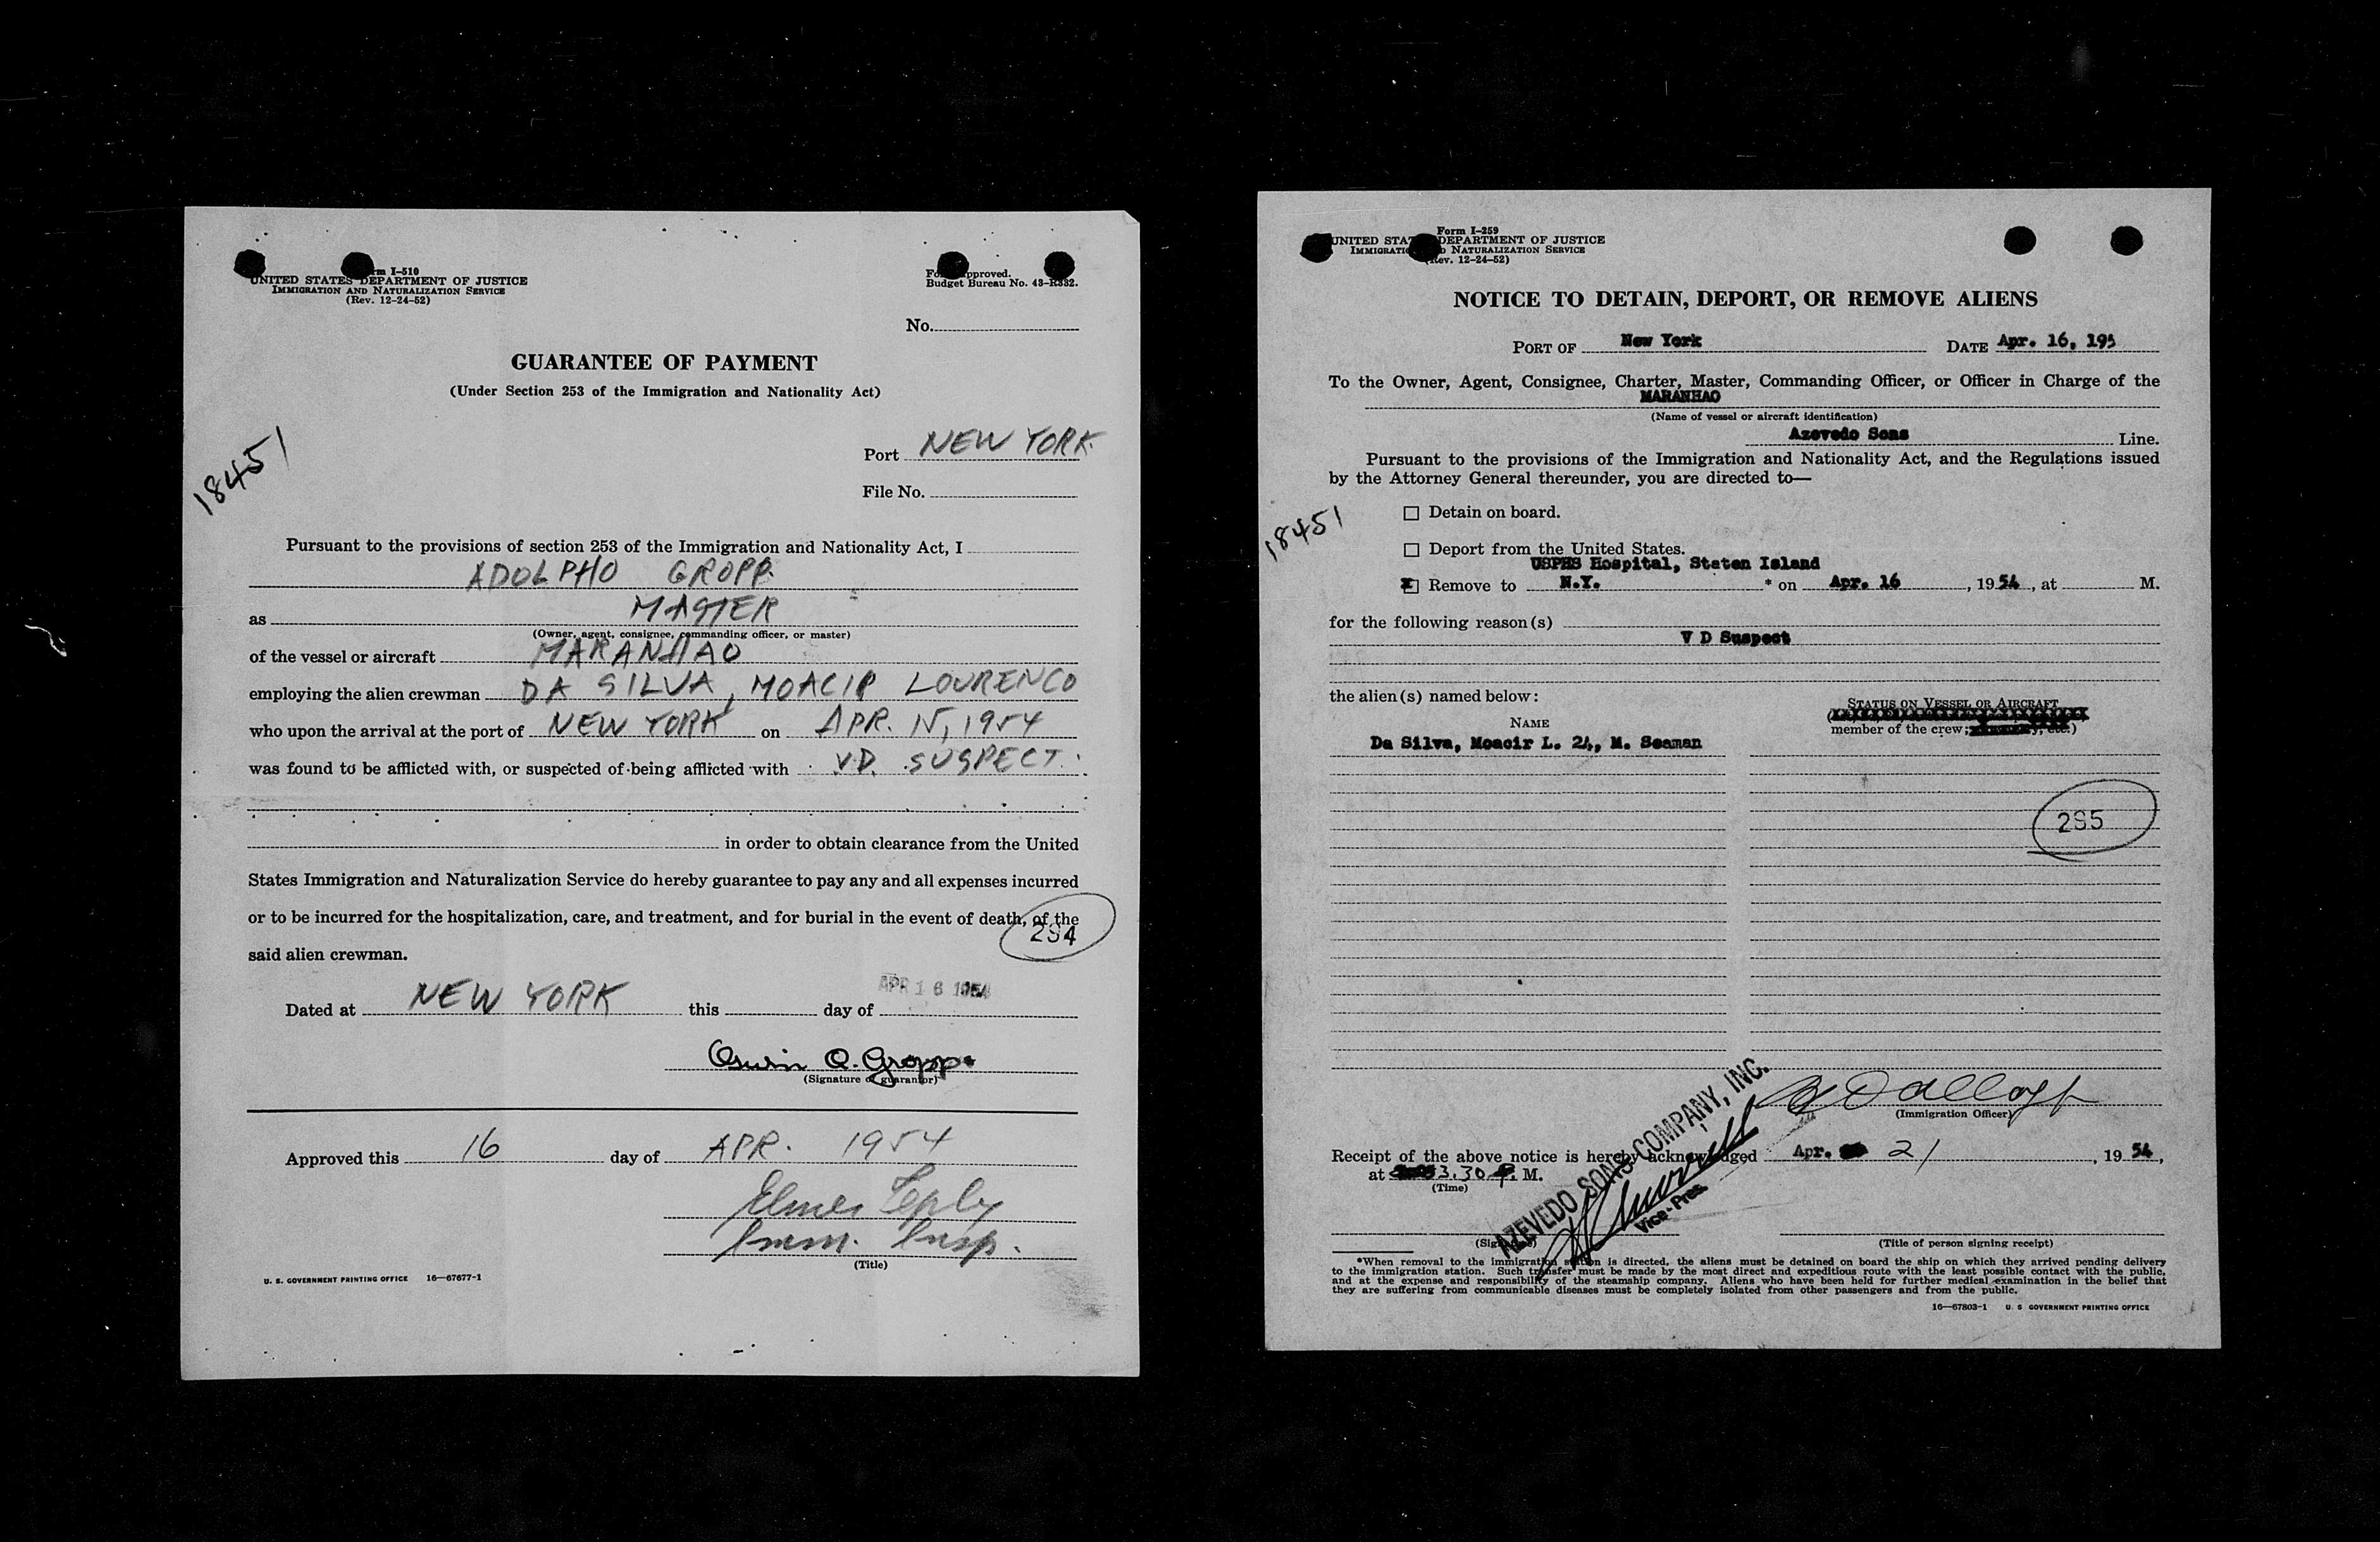 Form I-510
UNITED STATES DEPARTMENT OF JUSTICE
IMMIGRATION AND NATURALIZATION SERVICE
(Rev. 12-24-52)
Form approved.
Budget Bureau No. 43-R332.
No.
GUARANTEE OF PAYMENT
(Under Section 253 of the Immigration and Nationality Act)
18451
Port NEW YORK
File No.
Pursuant to the provisions of section 253 of the Immigration and Nationality Act, I
ADOLPHO GROPP.
as MASTER
(Owner, agent, consignee, commanding officer, or master)
of the vessel or aircraft MARANHAO
employing the alien crewman DA SILVA, MOACIR LOURENCO
who upon the arrival at the port of NEW YORK on APR. 15, 1954
was found to be afflicted with, or suspected of being afflicted with V.D. SUSPECT.
in order to obtain clearance from the United
States Immigration and Naturalization Service do hereby guarantee to pay any and all expenses incurred
or to be incurred for the hospitalization, care, and treatment, and for burial in the event of death, of the
294
said alien crewman.
Dated at NEW YORK this day of APR 16 1954
Gropp
(Signature of guarantor)
Approved this 16 day of APR. 1954
Elmer
Imm. Insp.
(Title)
U. S. GOVERNMENT PRINTING OFFICE 16—67677-1
Form I-259
UNITED STATES DEPARTMENT OF JUSTICE
IMMIGRATION AND NATURALIZATION SERVICE
(Rev. 12-24-52)
NOTICE TO DETAIN, DEPORT, OR REMOVE ALIENS
PORT OF New York DATE Apr. 16, 195
To the Owner, Agent, Consignee, Charter, Master, Commanding Officer, or Officer in Charge of the
MARANHAO
(Name of vessel or aircraft identification)
Azevedo Sons Line.
Pursuant to the provisions of the Immigration and Nationality Act, and the Regulations issued
by the Attorney General thereunder, you are directed to—
18451
Detain on board.
Deport from the United States.
USPHS Hospital, Staten Island
x Remove to N.Y. * on Apr. 16, 1954, at M.
for the following reason(s)
V D Suspect
the alien(s) named below:
NAME
STATUS ON VESSEL OR AIRCRAFT
member of the crew; etc.)
Da Silva, Moacir L. 24, M. Seaman
295
(Immigration Officer)
Receipt of the above notice is hereby acknowledged Apr. 21, 1954,
at 3.30 P. M.
(Time)
AZEVEDO SONS COMPANY, INC.
Vice-Pres.
(Signature)
(Title of person signing receipt)
*When removal to the immigration station is directed, the aliens must be detained on board the ship on which they arrived pending delivery
to the immigration station. Such transfer must be made by the most direct and expeditious route with the least possible contact with the public,
and at the expense and responsibility of the steamship company. Aliens who have been held for further medical examination in the belief that
they are suffering from communicable diseases must be completely isolated from other passengers and from the public.
16—67803-1 U. S GOVERNMENT PRINTING OFFICE